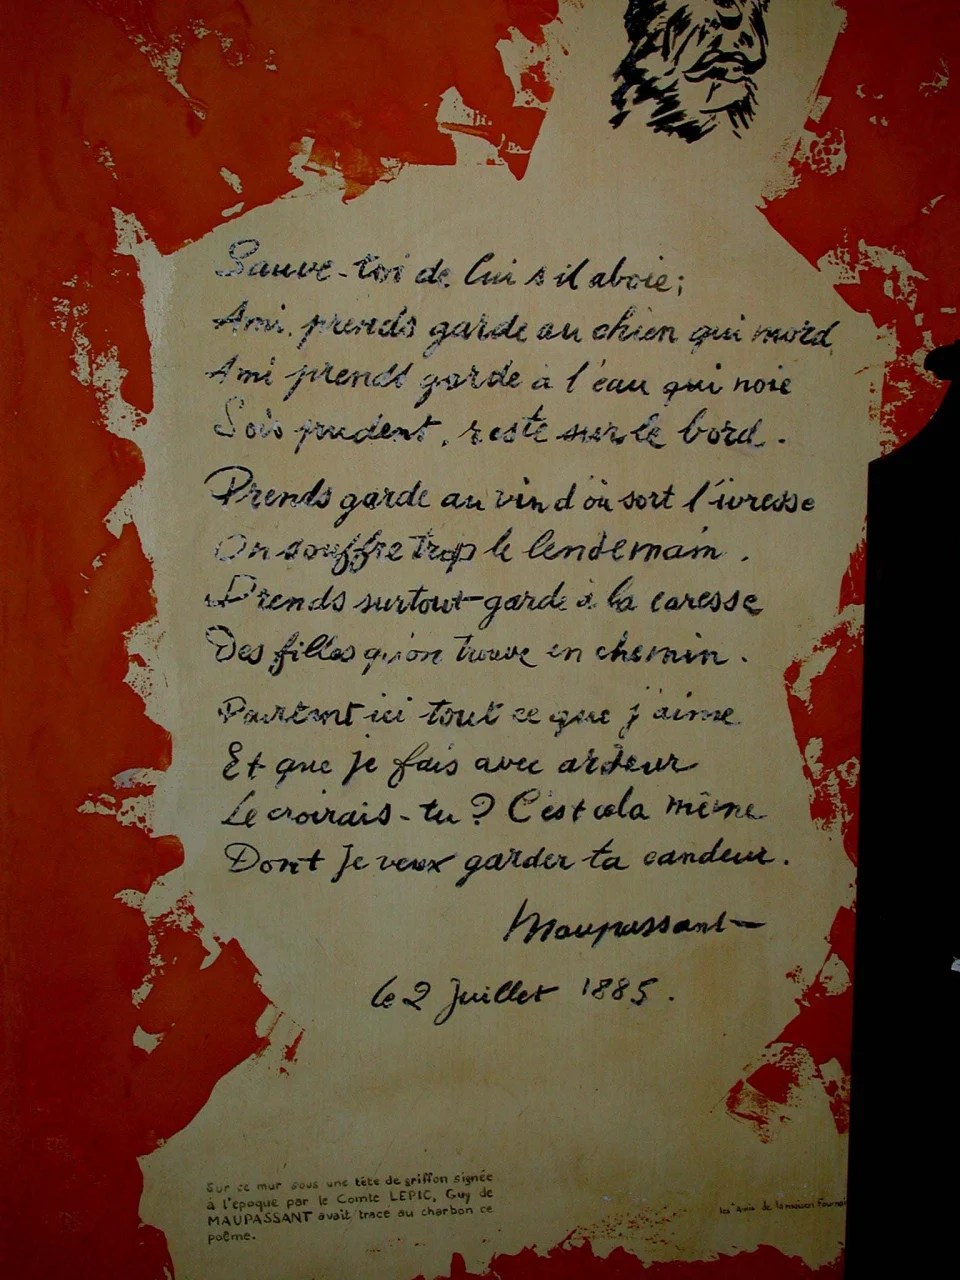 Sauve-toi de lui s'il aboie;
Ami prends garde au chien qui mord
Ami prends garde à l'eau qui noie
Sois prudent, reste sur le bord.
Prends garde au vin d'où sort l'ivresse
On souffre trop le lendemain.
Prends surtout garde à la caresse
Des filles qu'on trouve en chemin.
Pourtant ici tout ce que j'aime
Et que je fais avec ardeur
Le croirais-tu? C'est cela même
Dont je veux garder ta candeur.
Maupassant
le 2 Juillet 1885.
Sur ce mur sous une tête de griffon signée
à l'époque par le Comte LEPIC, Guy de
MAUPASSANT avait tracé au charbon ce
poême.
les Amis de la maison